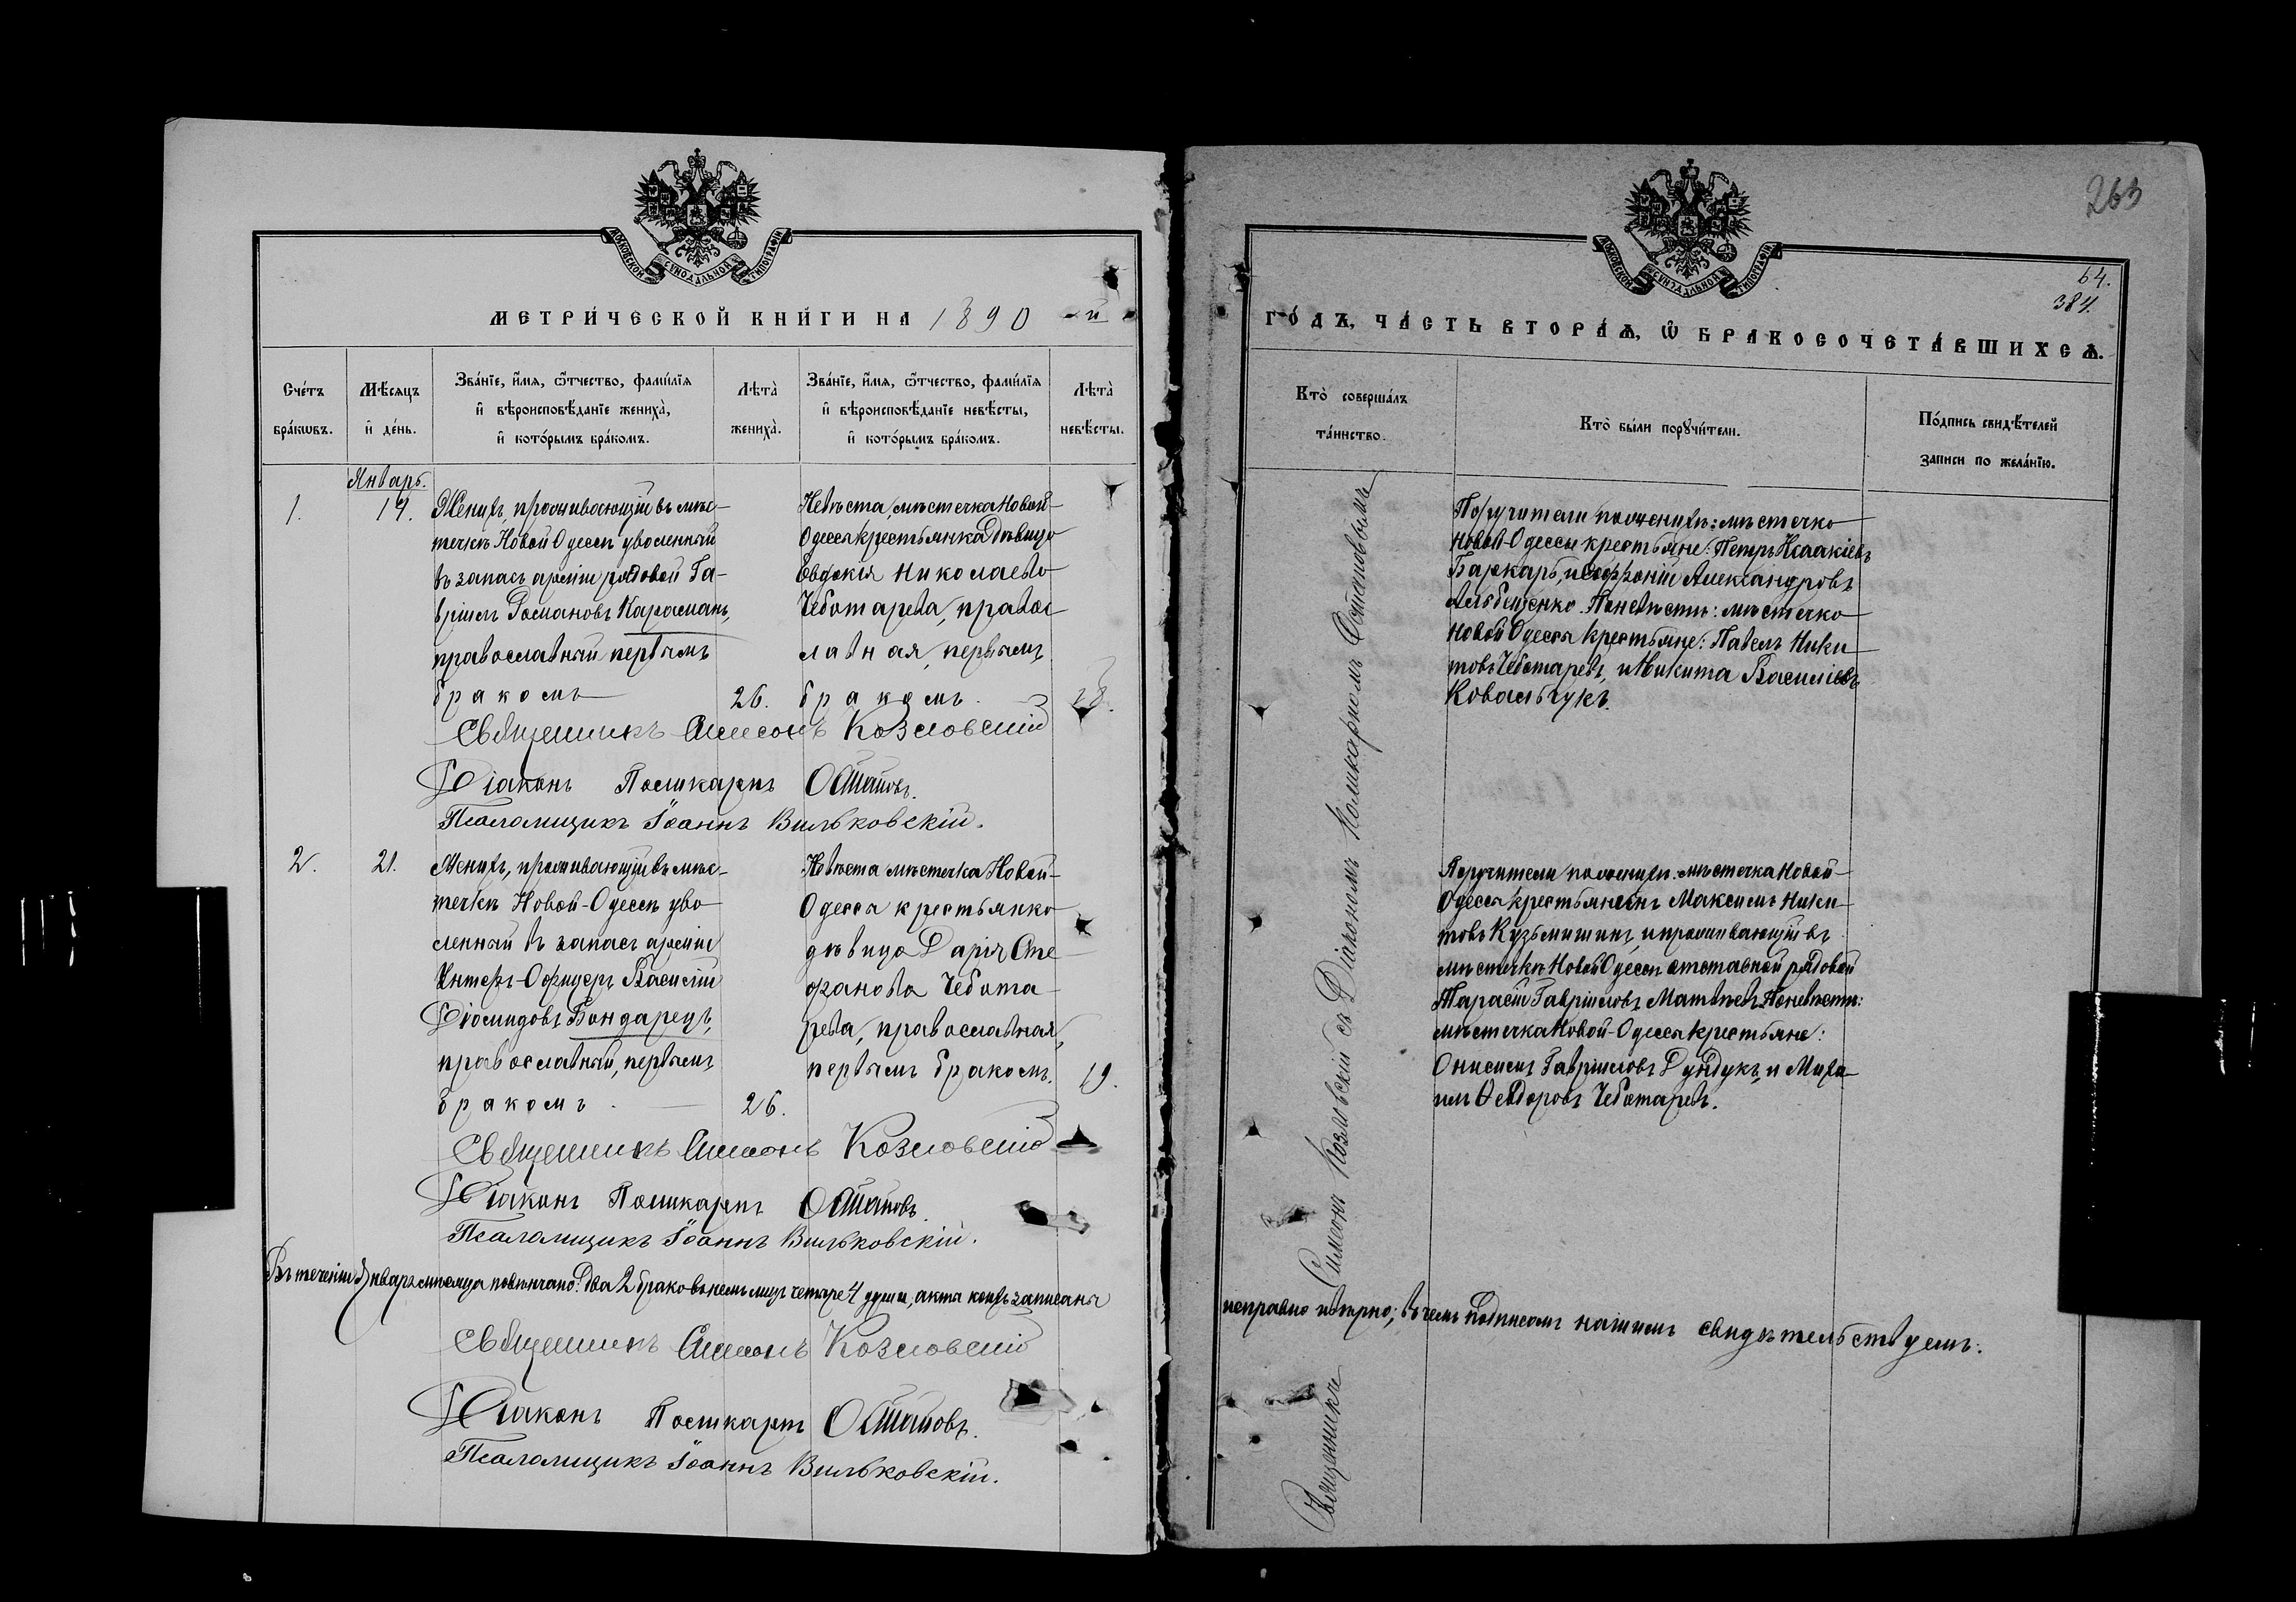 МОСКОВСКОЙ СѴНОДАЛЬНОЙ ТИПОГРАФІИ
МЕТРИ́ЧЕСКОЙ КНИ́ГИ НА 1890 -й
Сче́тъ бра́кѡвъ.
Мѣ́сѧцъ и҆ де́нь.
Зва́нїе, и҆́мѧ, ѻ҆́тчество, фамѝлїѧ
и҆ вѣроисповѣ́данїе жениха̀,
и҆ кото́рымъ бра́комъ.
Лѣ́та жениха̀.
Зва́нїе, и҆́мѧ, ѻ҆́тчество, фамѝлїѧ
и҆ вѣроисповѣ́данїе невѣ́сты,
и҆ кото́рымъ бра́комъ.
Лѣ́та невѣ́сты.
Январь.
1.
14.
Женихъ, проживающій въ мѣс-
течкѣ Новой Одессѣ уволенный
въ запасъ арміи рядовой Га-
вріилъ Романовъ Караманъ,
православный первымъ
бракомъ
26.
Невѣста, мѣстечка Новой-
Одесса крестьянка Дѣвица
Евдокія Николаева
Чеботарева, правос
лавная, первымъ
бракомъ.
28.
Священникъ Симеонъ Козловскій
Діаконъ Поликарпъ Остаповъ.
Псаломщикъ Іоаннъ Вильковскій.
2.
21.
Женихъ, проживающій въ мѣс-
течкѣ Новой-Одессѣ уво
ленный въ запасъ арміи
Унтеръ-Офицеръ Василій
Діомидовъ Бондарецъ,
православный, первымъ
бракомъ.
26.
Невѣста мѣстечка Новой-
Одесса крестьянка
дѣвица Дарія Сте
фанова Чебота
рева, православная,
первымъ бракомъ.
19.
Священникъ Симеонъ Козловскій
Діаконъ Поликарпъ Остаповъ.
Псаломщикъ Іоаннъ Вильковскій.
Въ теченіи Января мѣсяца повѣнчано: Два 2 брака въ нихъ лицъ четыре 4 души, акта коихъ записаны
Священникъ Симеонъ Козловскій
Діаконъ Поликарпъ Остаповъ.
Псаломщикъ Іоаннъ Вильковскій.
263
МОСКОВСКОЙ СѴНОДАЛЬНОЙ ТИПОГРАФІИ
64.
384.
ГО́ДЪ, ЧА́СТЬ ВТОРА́Ѧ, Ѽ БРАКОСОЧЕТА́ВШИХСѦ.
Кто̀ соверша́лъ
та́инство.
Кто̀ бы́ли порꙋчи́тели.
По́дпись свидѣ́телей
записи по жела́нїю.
Священникъ Симеонъ Козловскій съ Діакономъ Поликарпомъ Остаповымъ
Поручители по женихѣ: мѣстечка
Новой-Одессы крестьяне: Петръ Исаакіевъ
Баркарь, и Софроній Александровъ
Поневѣстѣ: мѣстечка
Новой Одесса крестьяне: Павелъ Ники
товъ Чеботаревъ, и Никита Василіевъ
Ковальчукъ.
Поручители по женихѣ: мѣстечка Новой-
Одесса крестьянинъ Максимъ Ники-
товъ Кузьмишинъ, и проживающій въ
мѣстечкѣ Новой Одессѣ отставной рядовой
Тарасій Гавріиловъ Матвѣевъ. Поневѣстѣ:
мѣстечка Новой-Одесса крестьяне:
Онисимъ Гавріиловъ Дундукъ, и Миха-
илъ Ѳеодоровъ Чеботаревъ.
исправно и вѣрно; въ чемъ подписомъ нашимъ свидѣтельствуемъ.